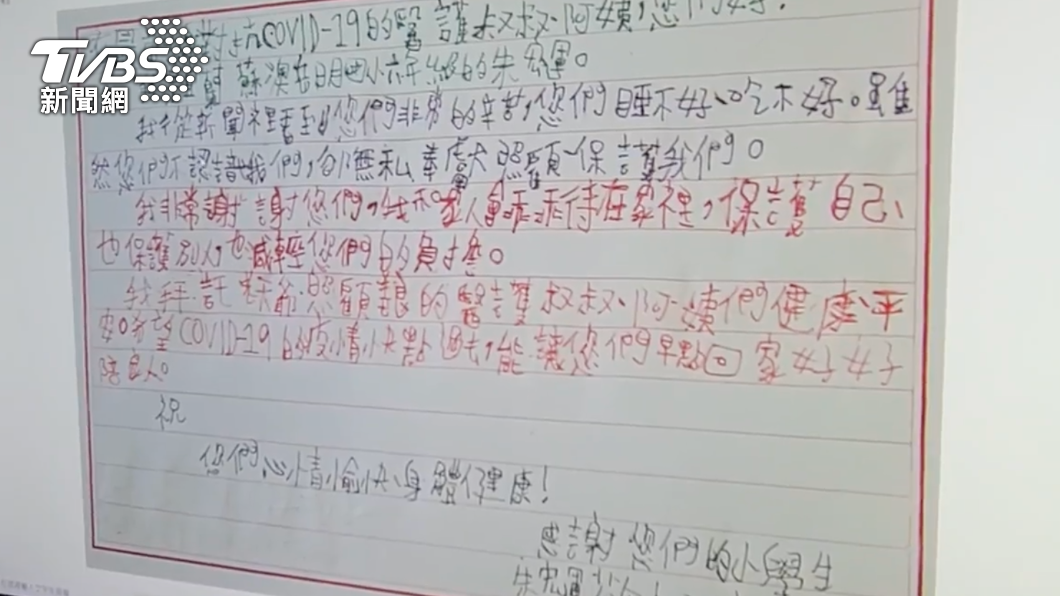 TVBS
新聞網
抗COVID-19的醫護叔叔、阿姨,您們好!
蘇澳 小六年級的朱
我從新聞裡看到,您們非常的辛苦,您們睡不好、吃不好。雖
然您們不認識我們,卻無私奉獻照顧、保護我們。
我非常謝謝您們,我和家人會乖乖待在家裡,保護自己、
也保護別人,也減輕您們的負擔。
我拜託 爺照顧 的醫護叔叔、阿姨們健康、平
安。希望COVID-19的疫情快點過去,能讓您們早點回家好好
陪家人。
祝
您們心情愉快、身體健康!
感謝您們的小學生
朱